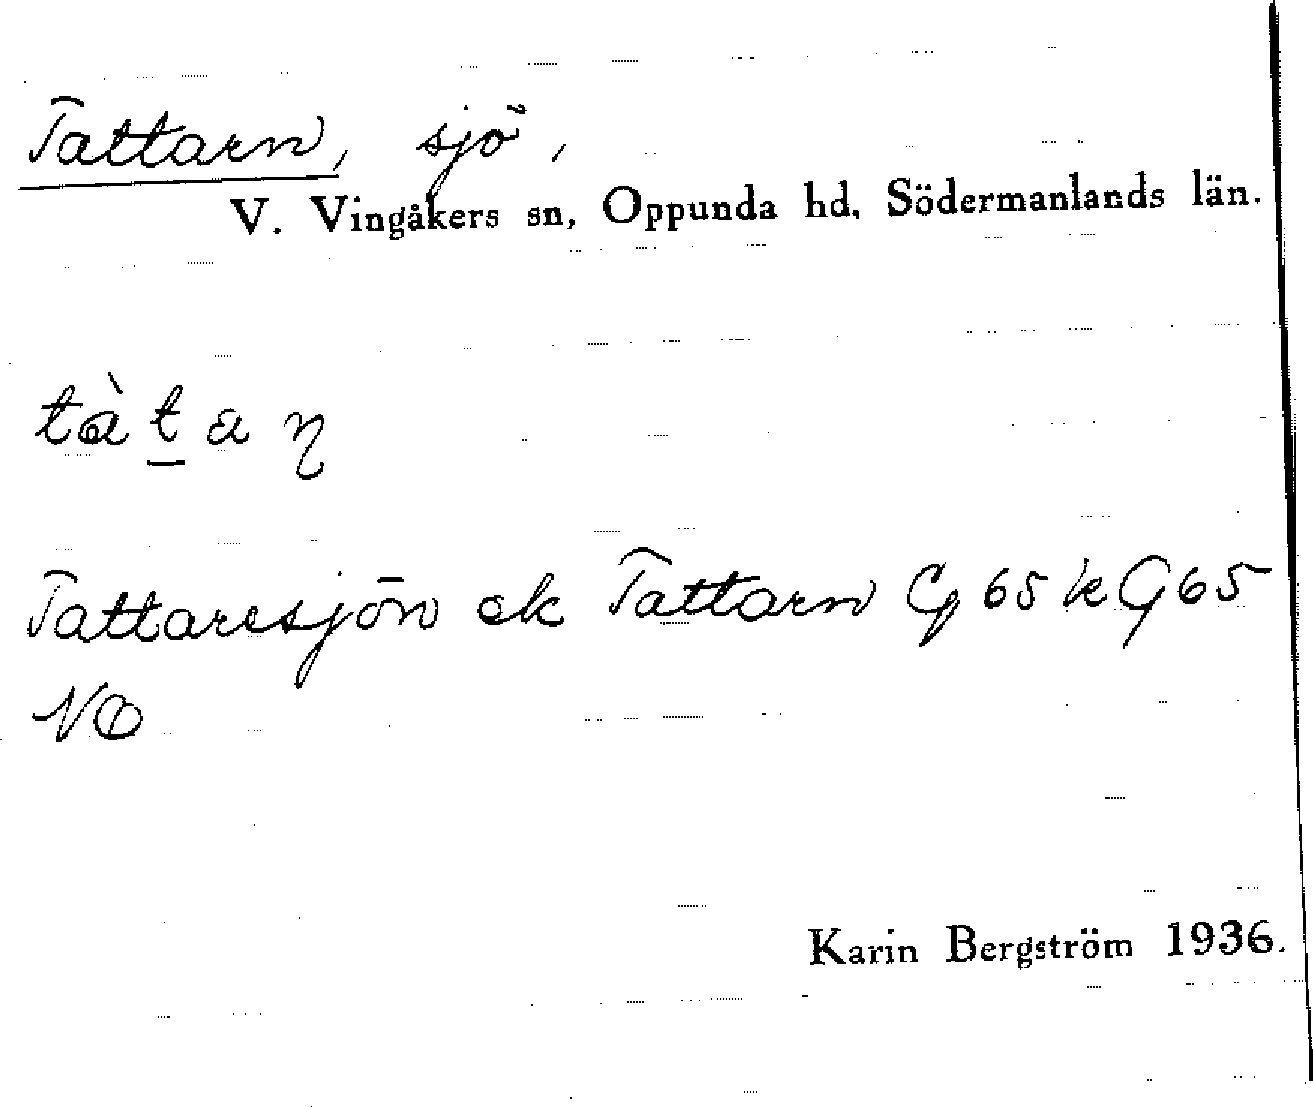 Tattarn, sjö,
V. Vingåkers sn, Oppunda hd, Södermanlands län.
tàt̲aη
Tattaresjön ek Tattarn G 65 k G 65
NO
Karin Bergström 1936.